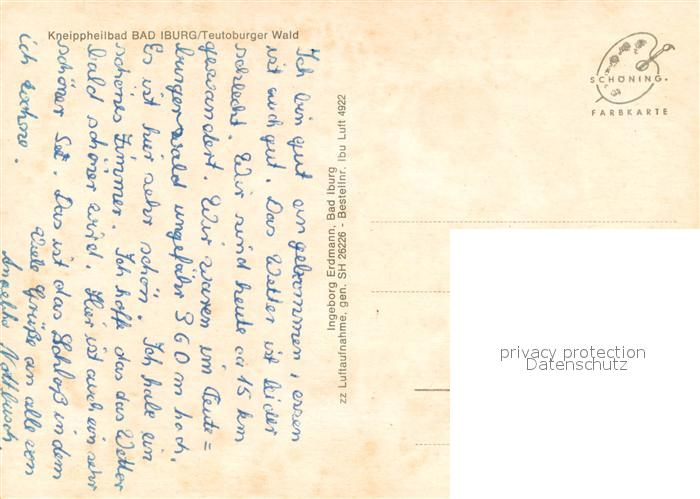 Kneippheilbad BAD IBURG/Teutoburger Wald
Ich bin gut eingekommen, essen
ist auch gut. Das Wetter ist leider
schlecht. Wir sind heute ca 15 km
gewandert. Wir waren im Teute=
burgerwald ungefähr 360 m hoch.
Es ist hier sehr schön. Ich habe ein
schönes Zimmer. Ich hoffe das das Wetter
bald schöner wird. Hier ist auch ein sehr
schöner See. Das ist das Schloß in dem
ich wohne.
Viele Grüße an alle von
Nottbusch.
Ingeborg Erdmann, Bad Iburg
zz Luftaufnahme, gen. SH 26226 - Bestellnr. Ibu Luft 4922
SCHÖNING.
FARBKARTE
privacy protection
Datenschutz